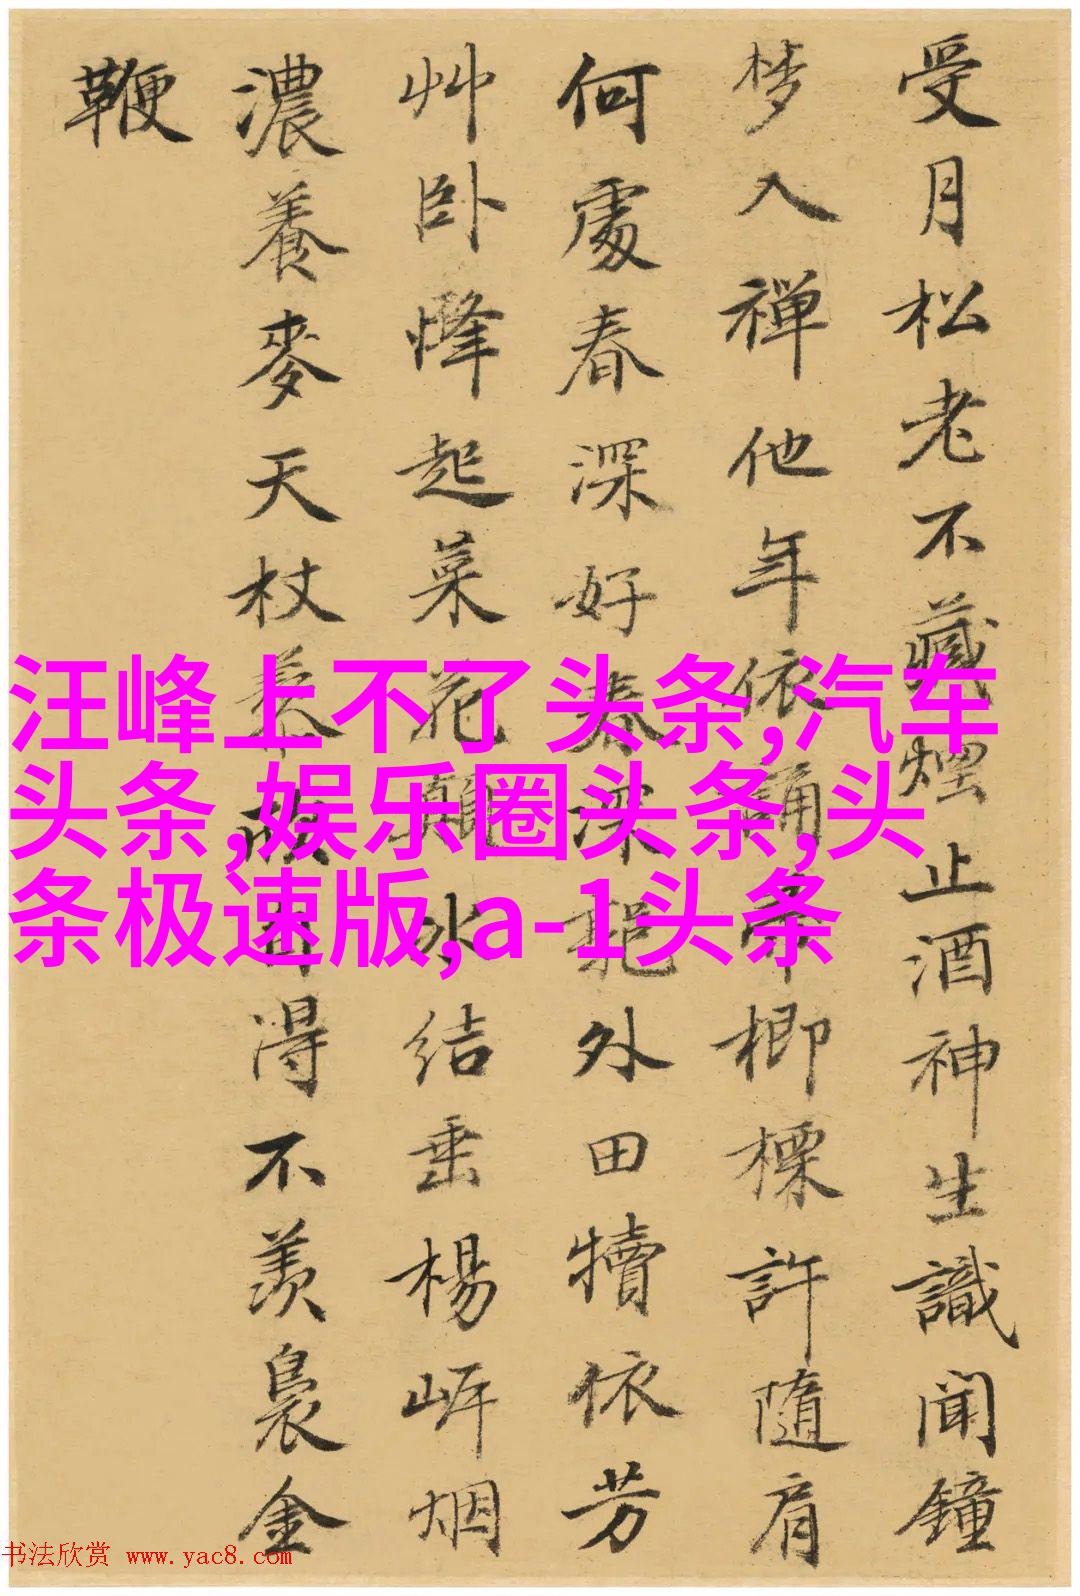 受月松老不藏煙止酒神生識聞鐘
梦入禅他年依誦帚楖標許隨肩
何處春深好春深外田犢依芳
艸卧起菜花顛水結垂楊岍烟
濃養麥天杖自得不羨裊金
鞭
汪峰上不了头条,汽车
头条,娱乐圈头条,头
条极速版,a-1头条
书法欣赏 www.yac8.com